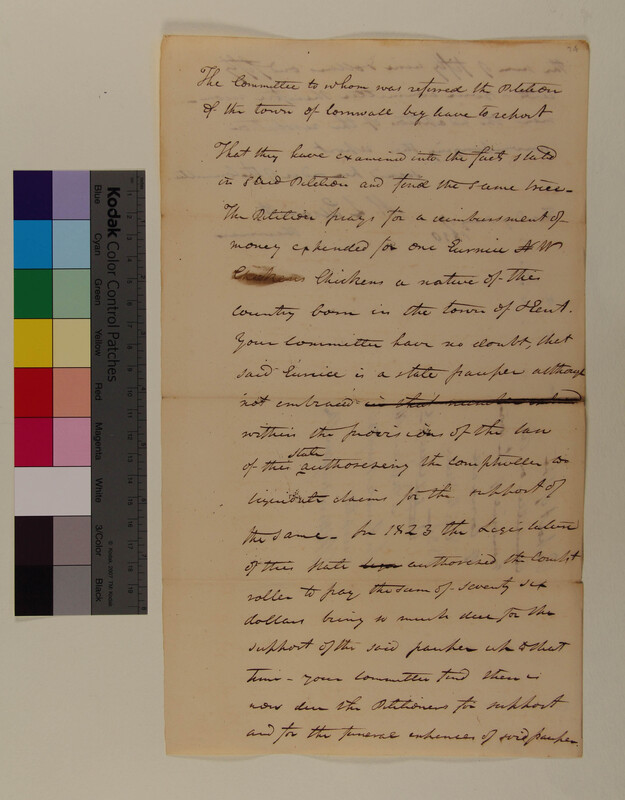 The Committee to whom was referred the Petition
of the town of Cornwall beg leave to report
That they have examined into the facts stated
in said Petition and find the same true-
The Petition prays for a reimbursment of
money expended for one Eunice W
Chickens a native of this
country born in the town of Kent.
Your committee have no doubt, that
said Eunice is a state pauper although
not embraced
within the provisions of the law
of this state authoriseing the comptroller to
liquidate claims for the support of
the same- In 1823 the Legislature
of this state authorised the Compt
roller to pay the sum of seventy six
dollars being so much due for the
support of the said pauper up to that
time- your committee find there is
now due the Petitioners for support
and for the funeral expences of said pauper
Kodak Color Control Patches
Blue
Cyan
Green
Yellow
Red
Magenta
White
3/Color
Black